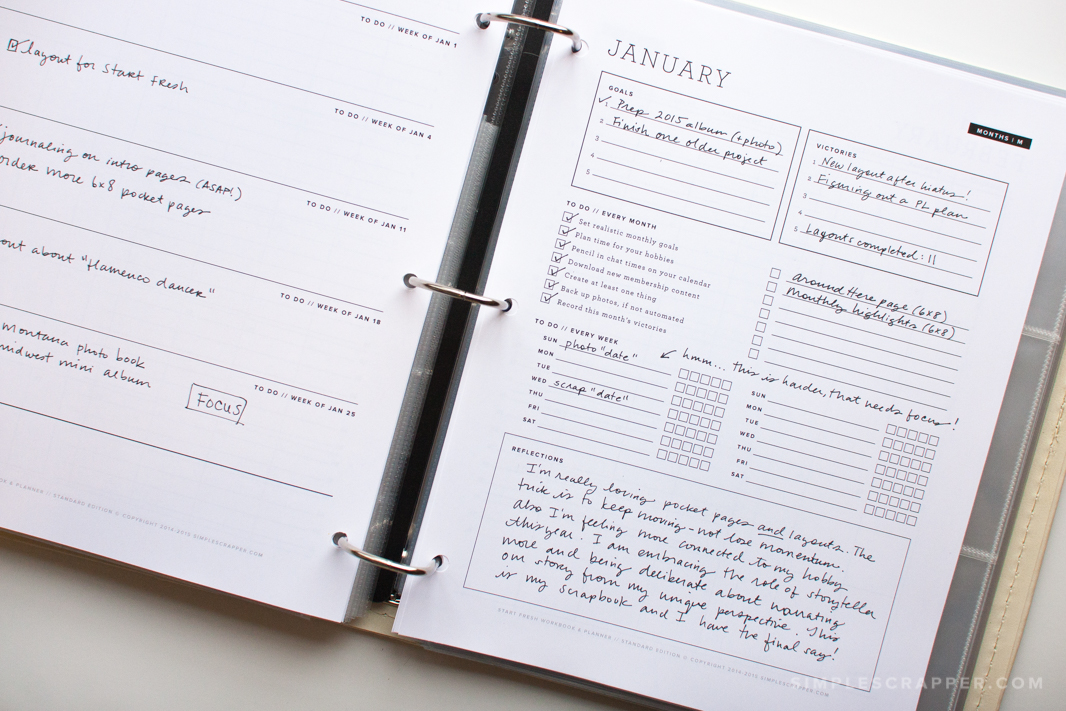 TO DO // WEEK OF JAN 1
layout for Start Fresh
TO DO // WEEK OF JAN 4
journaling on intro pages (ASAP!)
order more 6x8 pocket pages
TO DO // WEEK OF JAN 11
out about "flamenco dancer"
TO DO // WEEK OF JAN 18
montana photo book
midwest mini album
TO DO // WEEK OF JAN 25
FOCUS
& PLANNER // STANDARD EDITION © COPYRIGHT 2014-2015 SIMPLESCRAPPER.COM
JANUARY
MONTHS | M
GOALS
1 Prep 2015 album (+photo)
2 Finish one older project
3
4
5
VICTORIES
1 New layout after hiatus!
2 Figuring out a PL plan
3
4
5 Layouts completed: 11
TO DO // EVERY MONTH
Set realistic monthly goals
Plan time for your hobbies
Pencil in chat times on your calendar
Download new membership content
Create at least one thing
Back up photos, if not automated
Record this month's victories
around Here page (6x8)
Monthly highlights (6x8)
TO DO // EVERY WEEK
SUN photo "date"
MON
TUE
WED scrap "date"
THU
FRI
SAT
hmm... this is harder, that needs focus!
SUN
MON
TUE
WED
THU
FRI
SAT
REFLECTIONS
I'm really loving pocket pages and layouts. The
trick is to keep moving - not lose momentum.
Also I'm feeling more connected to my hobby
this year. I am embracing the role of storyteller
more and being deliberate about narrating
our story from my unique perspective. This
is my scrapbook and I have the final say!
START FRESH WORKBOOK & PLANNER // STANDARD EDITION © COPYRIGHT 2014-2015 SIMPLESCRAPPER.COM
SIMPLESCRAPPER.COM